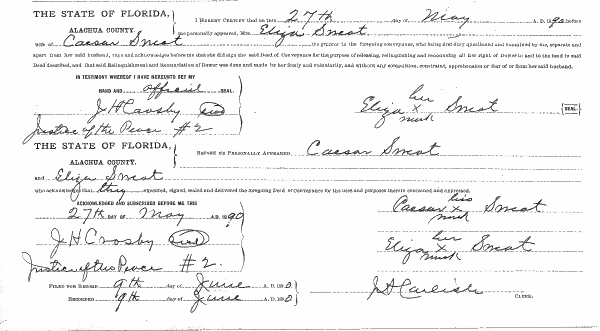 THE STATE OF FLORIDA,
ALACHUA COUNTY.
I HEREBY CERTIFY that on this 27th day of May A. D. 1890 before
me personally appeared, Mrs. Eliza Smeat
wife of Caesar Smeat the grantor in the foregoing conveyance, who being duly questioned and examined by me, separate and
apart from her said husband, and acknowledges before me that she did sign the said Deed of Conveyance for the purpose of releasing, relinquishing and renouncing all her right of Dower in and to the land in said
Deed described, and that said Relinquishment and Renunciation of Dower was done and made by her freely and voluntarily, and without any compulsion, constraint, apprehension or fear of or from her said husband.
IN TESTIMONY WHEREOF I HAVE HEREUNTO SET MY
HAND AND official SEAL.
J H Crosby Seal
Justice of the Peace #2
her
Eliza x Smeat SEAL
mark
THE STATE OF FLORIDA,
ALACHUA COUNTY.
PERSONALLY APPEARED Caesar Smeat
and Eliza Smeat
who acknowledged that they executed, signed, sealed and delivered the foregoing Deed of Conveyance for the uses and purposes therein contained and expressed.
ACKNOWLEDGED AND SUBSCRIBED BEFORE ME THIS
27th DAY OF May A.D. 1890
J H Crosby Seal
Justice of the Peace #2.
his
Caesar x Smeat
mark
her
Eliza x Smeat
mark
FILED FOR RECORD 9th day of June A. D. 1890
RECORDED 9th day of June A. D. 1890
J A Carlisle CLERK.